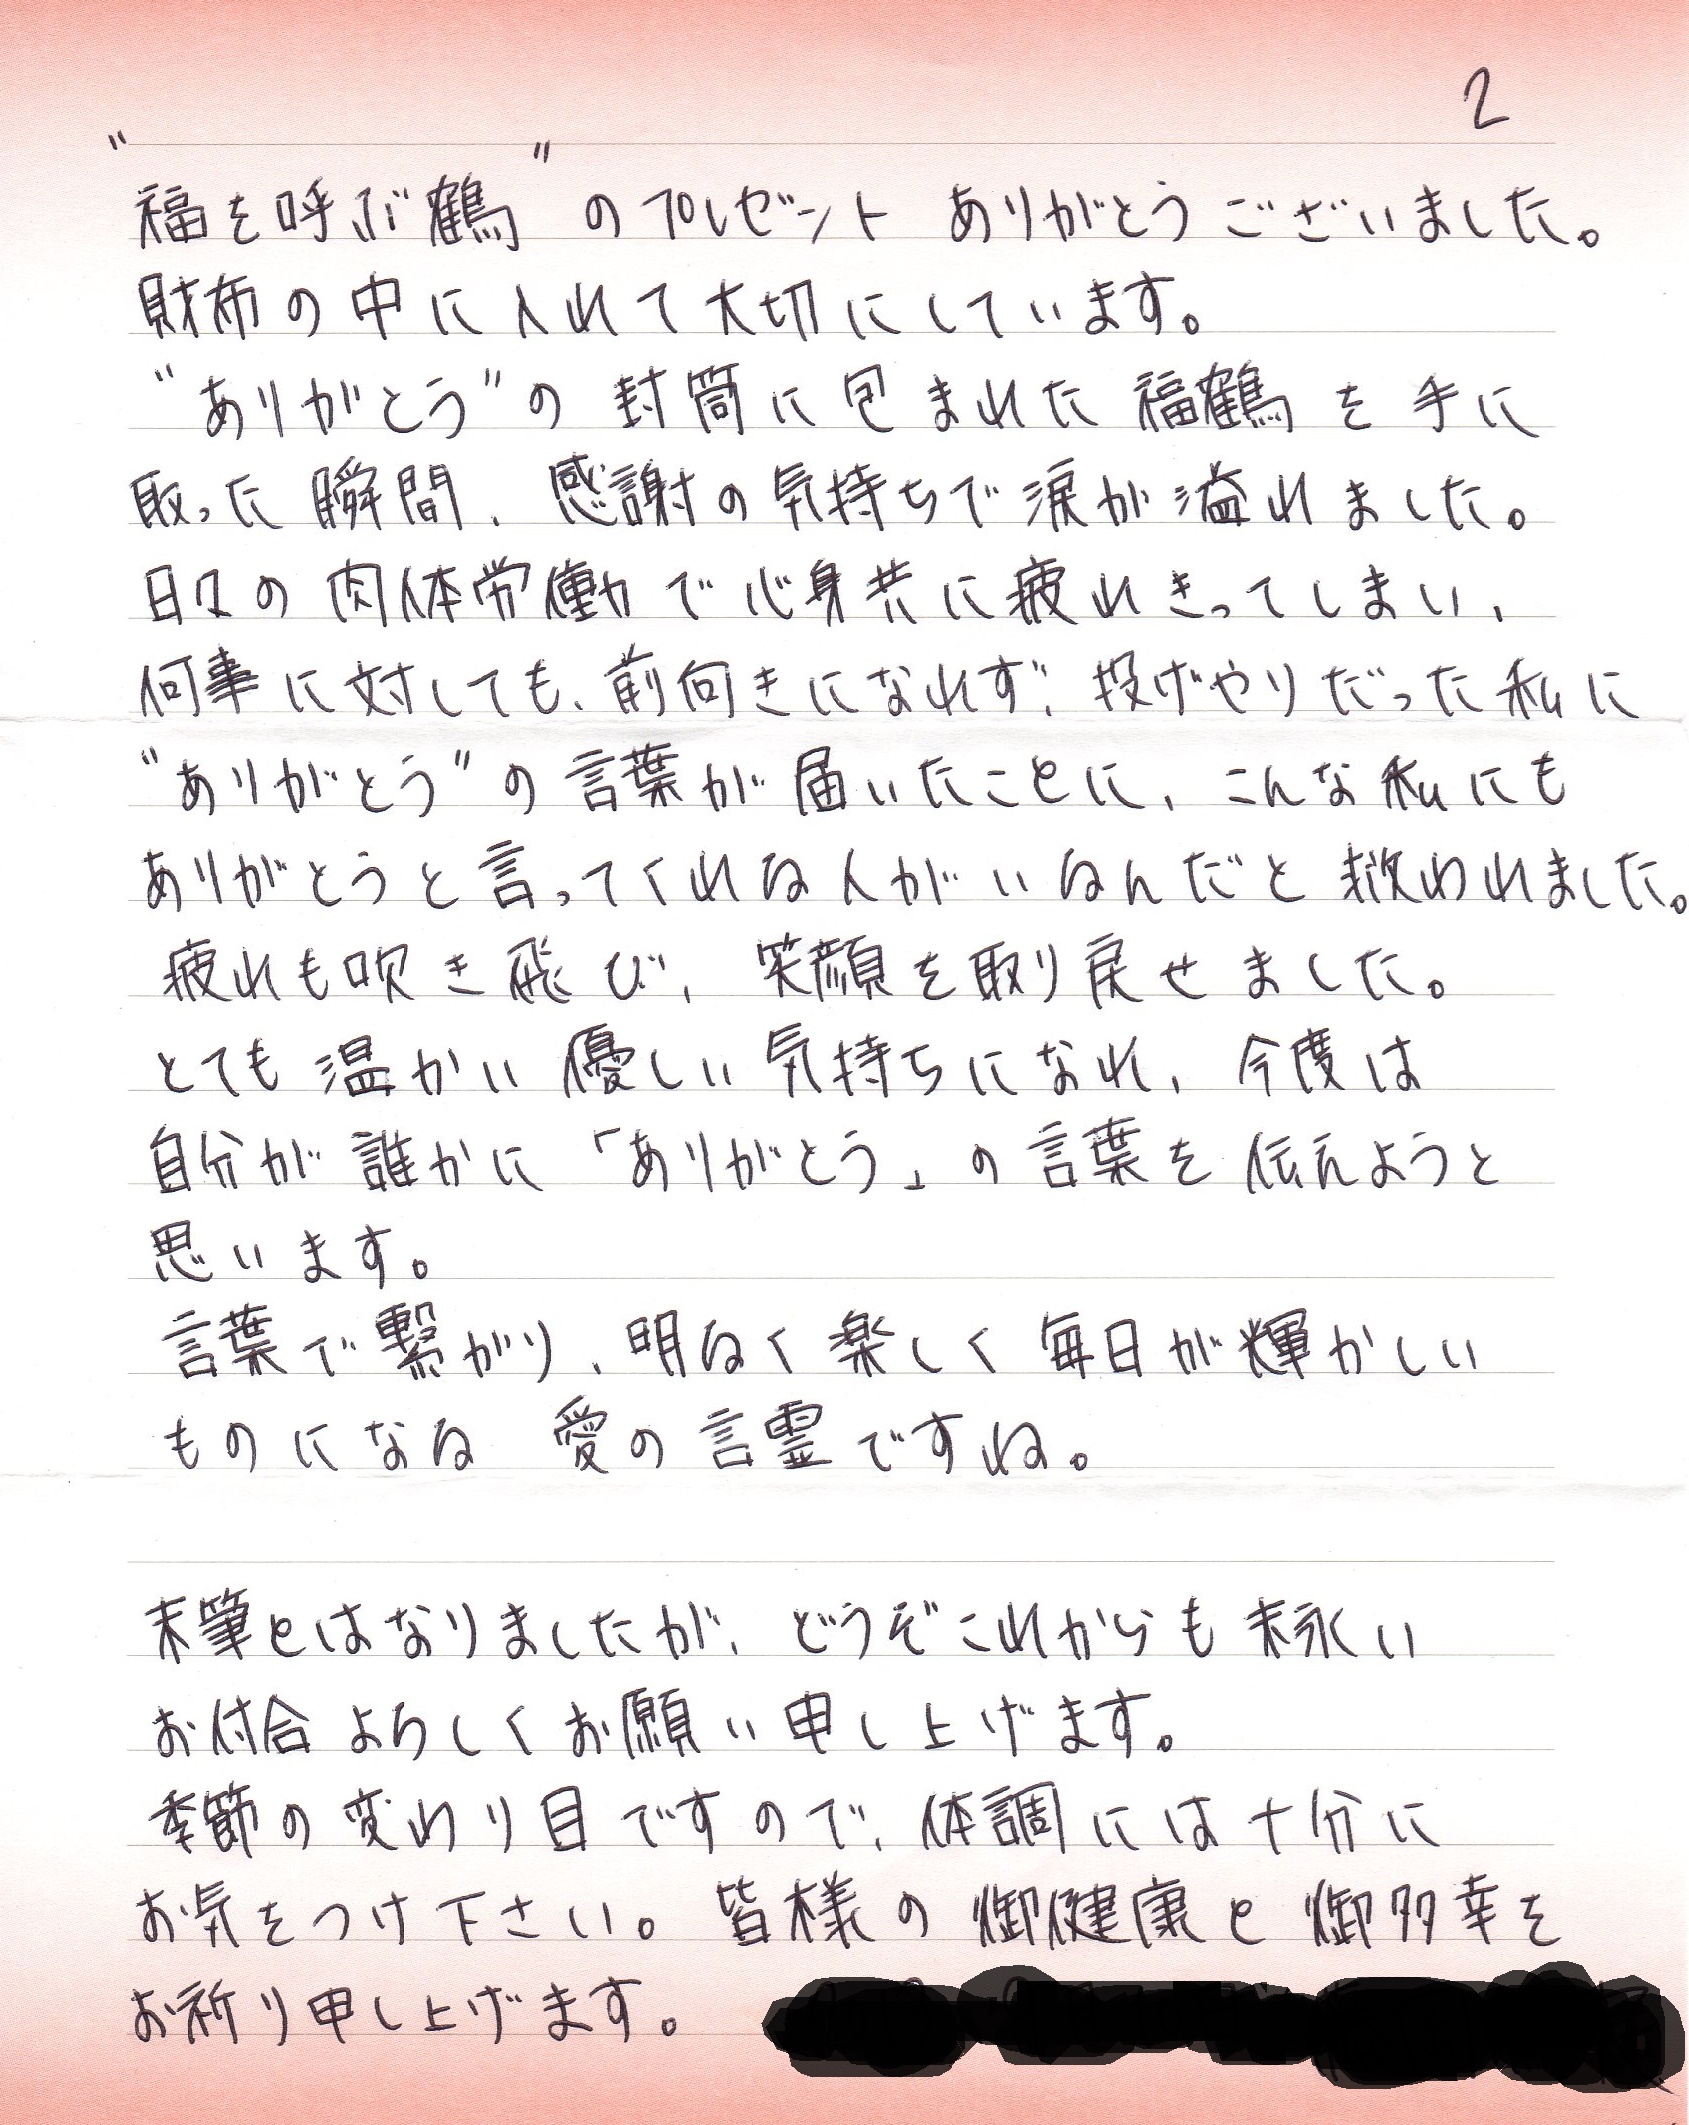 2
“福を呼ぶ鶴”のプレゼント ありがとうございました。
財布の中に入れて大切にしています。
“ありがとう”の封筒に包まれた福鶴を手に
取った瞬間、感謝の気持ちで涙が溢れました。
日々の肉体労働で心身共に疲れきってしまい、
何事に対しても、前向きになれず、投げやりだった私に
“ありがとう”の言葉が届いたことに、こんな私にも
ありがとうと言ってくれる人がいるんだと救われました。
疲れも吹き飛び、笑顔を取り戻せました。
とても温かい優しい気持ちになれ、今度は
自分が誰かに「ありがとう」の言葉を伝えようと
思います。
言葉で繋がり、明るく楽しく毎日が輝かしい
ものになる 愛の言霊ですね。
末筆とはなりましたが、どうぞこれからも末永い
お付合よろしくお願い申し上げます。
季節の変わり目ですので、体調には十分に
お気をつけ下さい。皆様の御健康と御多幸を
お祈り申し上げます。